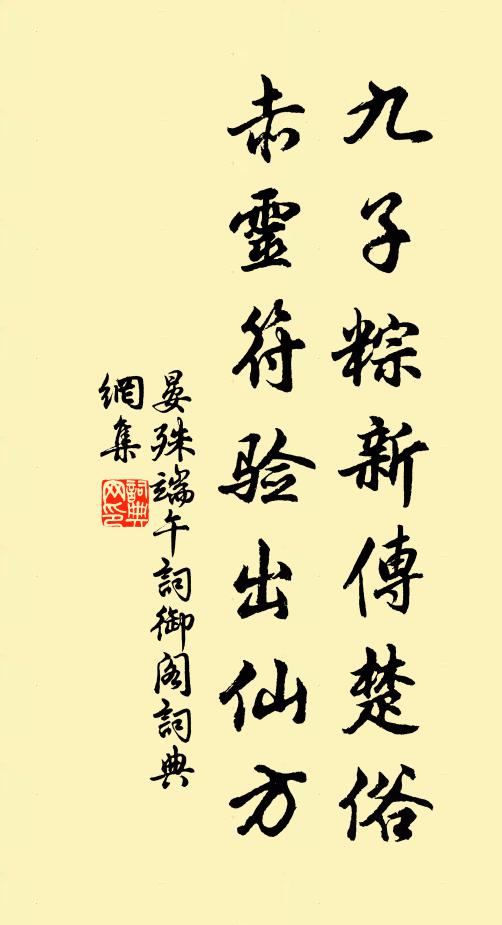 九子粽新傳楚俗
赤靈符验出仙方
晏殊端午詞御阁詞典
網集
詞典網印